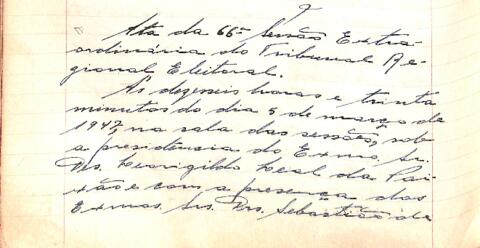 Ata da 66ª Sessão Extra-
ordinária do Tribunal Re-
gional Eleitoral.
As dezesseis horas e trinta
minutos do dia 5 de março de
1947, na sala das sessões, sob
a presidência do Exmo. Sr.
Des. Leovigildo Leal da Pai-
xão e com a presença dos
Exmos. Srs. Drs. Sebastião de